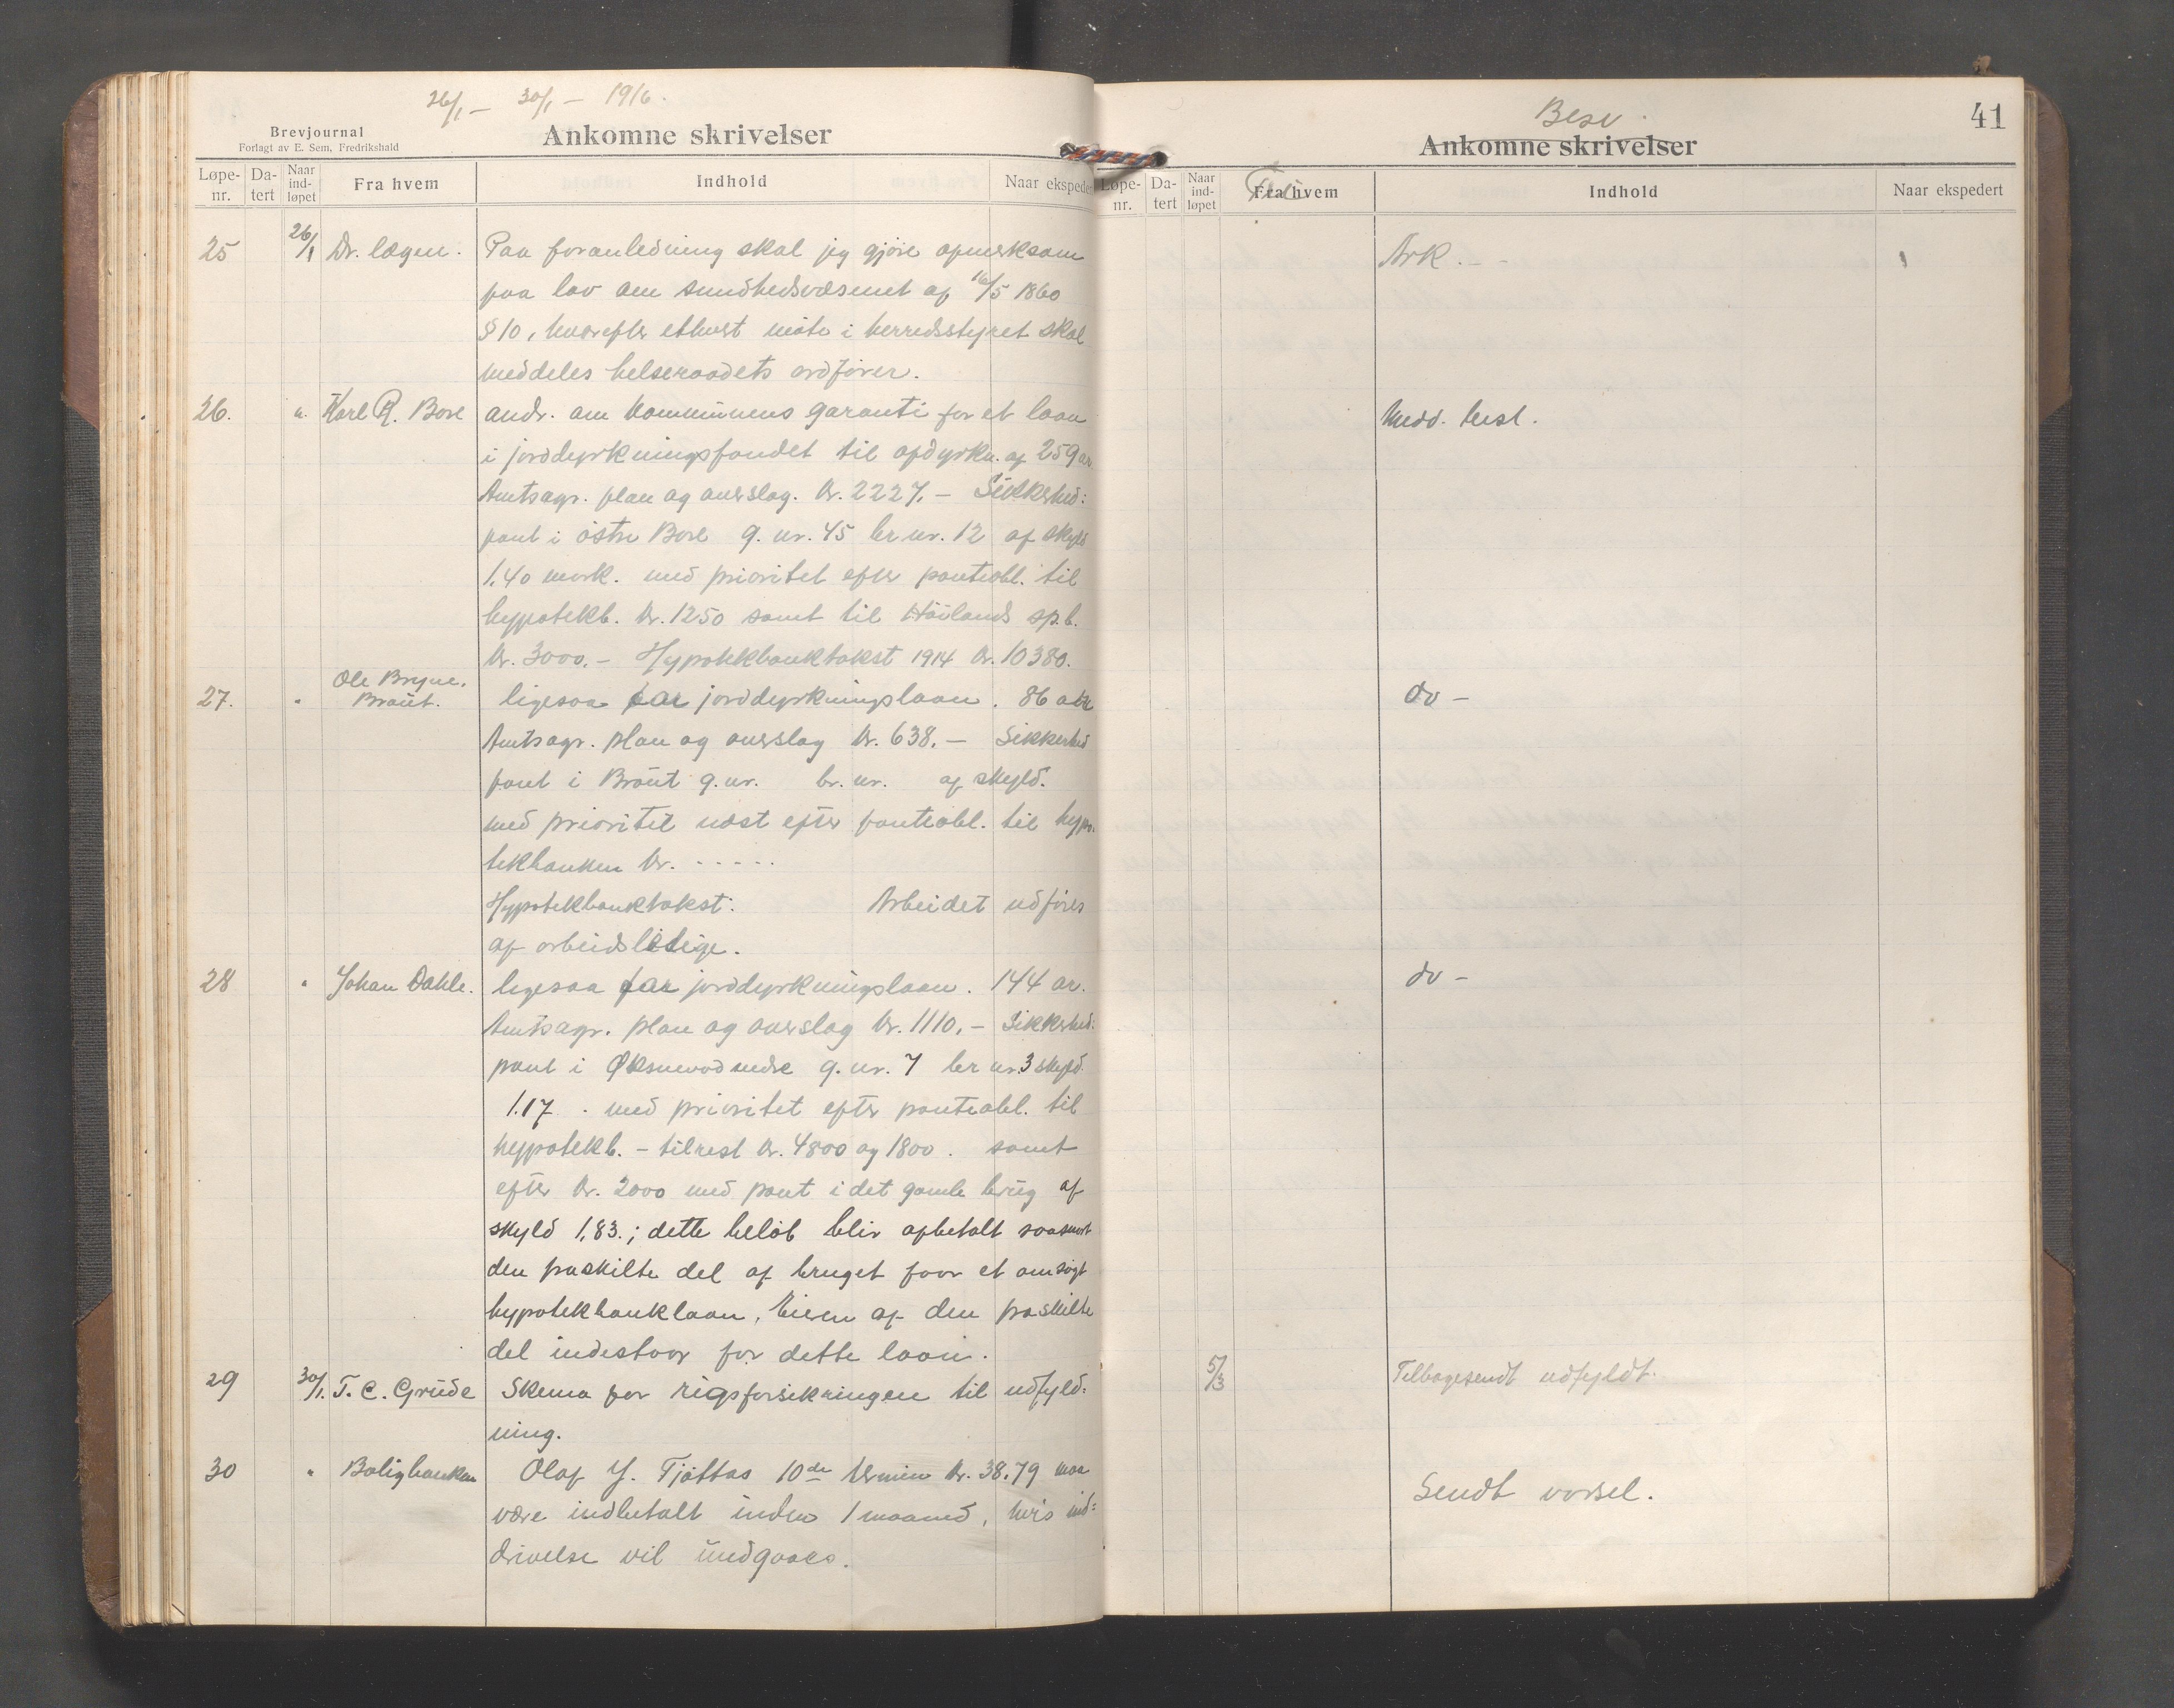 26/1 – 30/1 – 1916.
Brevjournal
Forlagt av E. Sem, Fredrikshald
Ankomne skrivelser
Løpe-nr. Da-tert Naar ind-løpet Fra hvem Indhold Naar ekspedert
25 26/1 Dr. lægen. Paa foranledning skal jeg gjøre opmerksom
paa lov om sundhedsvæsenet af 16/5 1860
§ 10, hvorefter ethvert møte i herredsstyret skal
meddeles helseraadets ordfører.
26. " Karl R. Bore andr. om kommunens garanti for et laan
i jorddyrkningsfondet til opdyrkn. af 259 ar
Amtsagr. plan og overslag. kr. 2227,– Sikkerhed:
pant i østre Bore g. nr. 45 br nr. 12 af skyld
1,40 mark. med prioritet efter panteobl. til
hypotekb. kr. 1250 samt til Høilands sp.b.
kr. 3000.– Hypotekbanktakst 1914 kr. 10380.
27. " Ole Bryne,
Braut. ligesaa jorddyrkningslaan. 86 ar
Amtsagr. plan og overslag kr. 638,– Sikkerhed
pant i Braut g. nr. br. nr. af skyld.
med prioritet næst efter panteobl. til hypo-
tekbanken kr. - - - - -
Hypotekbanktakst. Arbeidet udføres
af arbeidsledige.
28 " Johan Dahle. ligesaa jorddyrkningslaan. 144 ar.
Amtsagr. plan og overslag kr. 1110,– Sikkerhed:
pant i Øksnevad nedre g. nr. 7 br nr. 3 skyld.
1.17 . med prioritet efter panteobl. til
hypotekb. – tilrest kr. 4800 og 1800. samt
efter kr. 2000 med pant i det gamle brug af
skyld 1,83.; dette beløb blir afbetalt saasnart
den fraskilte del af bruget faar et omsøgt
hypotekbanklaan. Eieren af den fraskilte
del indestaar for dette laan.
29 30/1. T. C. Grude Skema for rigsforsikringen til udfyld-
ning.
30 " Boligbanken Olaf J. Tjøttas 10de termin kr. 38,79 maa
være indbetalt inden 1 maaned, hvis ind-
drivelse vil undgaaes.
Besv.
41
Ankomne skrivelser
Løpe-nr. Da-tert Naar ind-løpet Fra hvem Indhold Naar ekspedert
Ark. –
Medd. besl.
do –
do –
5/3 Tilbagesendt udfyldt.
Sendt varsel.